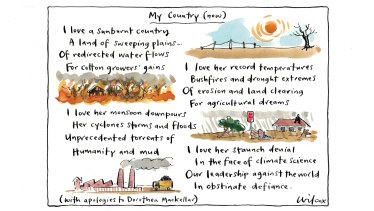 My Country (now)
I love a sunburnt country
A land of sweeping plains...
Of redirected water flows
For cotton growers' gains
I love her record temperatures
Bushfires and drought extremes
Of erosion and land clearing
For agricultural dreams
I love her monsoon downpours
Her cyclones storms and floods
Unprecedented torrents of
Humanity and mud
I love her staunch denial
In the face of climate science
Our leadership against the world
In obstinate defiance...
(with apologies to Dorothea Mackellar)
Wilcox